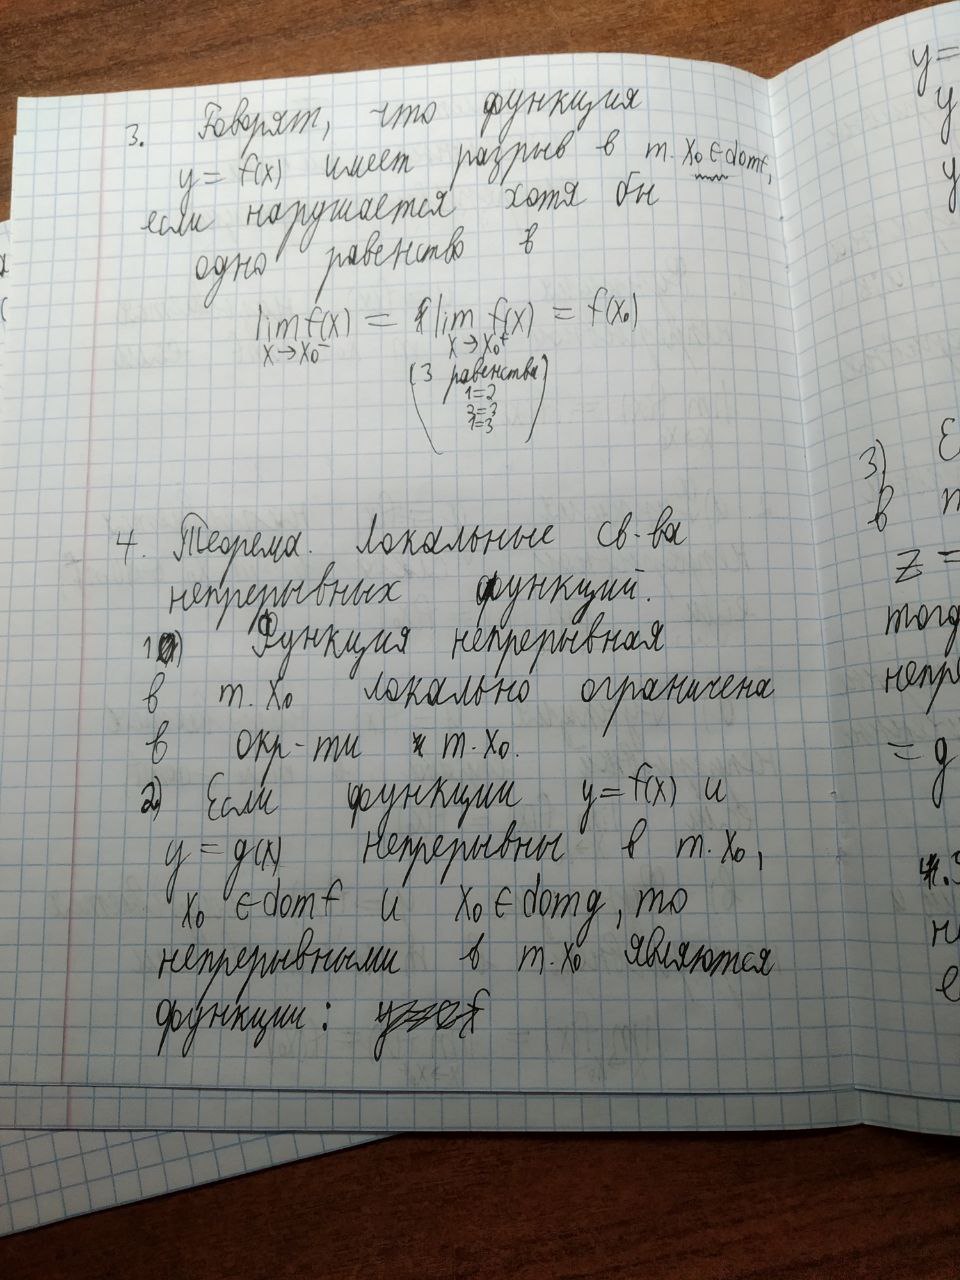 3. Говорят, что функция
y = f(x) имеет разрыв в т. x₀ ∈ domf,
если нарушается хотя бы
одно равенство в
lim f(x) = lim f(x) = f(x₀)
x→x₀⁻ x→x₀⁺
(3 равенства)
1=2
2=3
1=3
4. Теорема. Локальные св-ва
непрерывных функций.
1) Функция непрерывная
в т. x₀ локально ограничена
в окр-ти т. x₀.
2) Если функции y = f(x) и
y = g(x) непрерывны в т. x₀,
x₀ ∈ domf и x₀ ∈ domg, то
непрерывными в т. x₀ являются
функции:
y=
y
y
3)
в
z =
тогд
непре
= g
4.
не
е